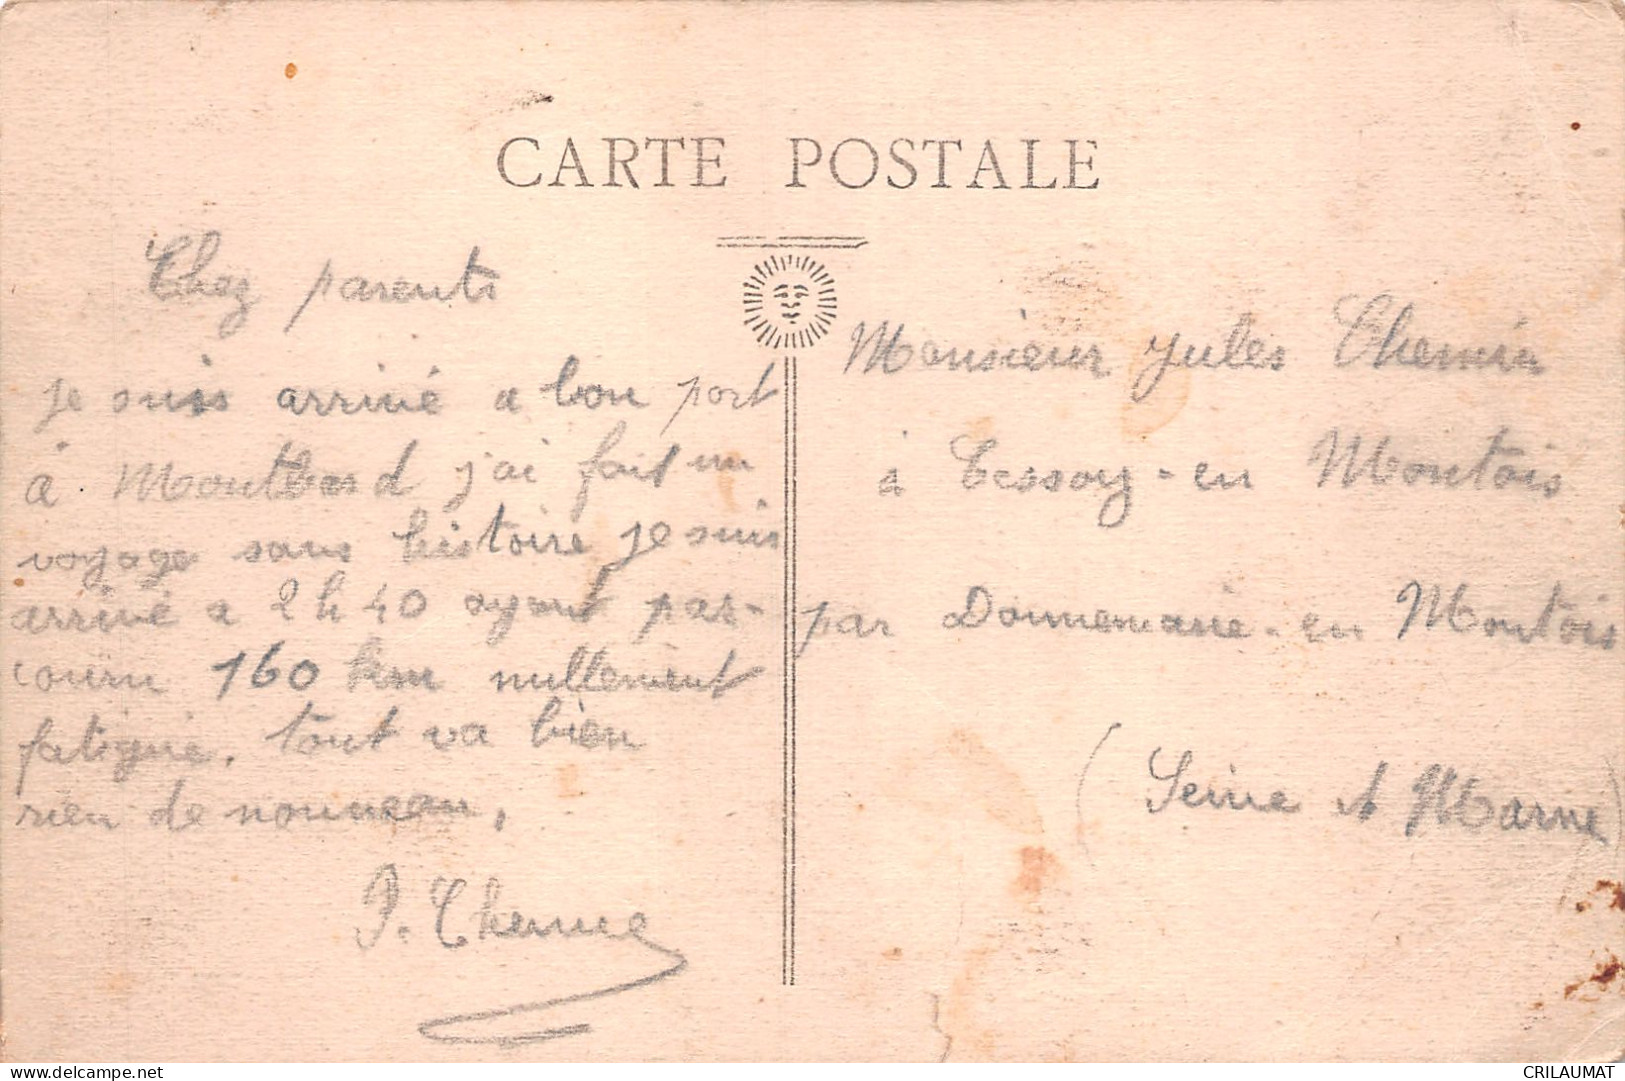 CARTE POSTALE
Cher parents
je suis arrivé a bon port
à Montbard j'ai fait un
voyage sans histoire je suis
arrivé a 2h40 ayant par-
couru 160 km nullement
fatigué. tout va bien
rien de nouveau.
Monsieur Jules Chemin
à Cessoy-en Montois
par Donnemarie-en Montois
(Seine et Marne)
www.delcampe.net
CRILAUMAT